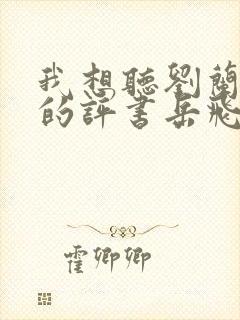 我想聽劉蘭
的評書岳飛
霍卿卿